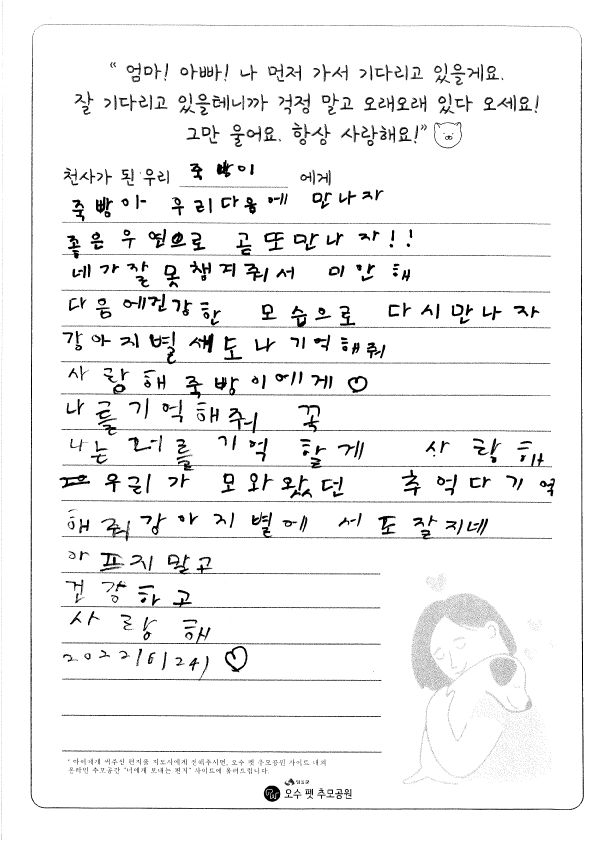 “ 엄마! 아빠! 나 먼저 가서 기다리고 있을게요.
잘 기다리고 있을테니까 걱정 말고 오래오래 있다 오세요!
그만 울어요. 항상 사랑해요!”
천사가 된 우리 죽빵이 에게
죽빵아 우리다음에 만나자
좋은 우연으로 곧또만나자!!
네가잘못챙겨줘서 미안해
다음에건강한 모습으로 다시만나자
강아지별세도나기억해줘
사랑해죽빵이에게♡
나를기억해줘 꼭
나는너를 기억 할게 사랑해
우리가 모와왔던 추억다기억
해줘강아지별에서도잘지네
아프지말고
건강하고
사랑해
2022/6/24/ ♡
* 아이에게 써주신 편지를 지도사에게 전해주시면, 오수 펫 추모공원 사이트 내의
온라인 추모공간 "너에게 보내는 편지" 사이트에 올려드립니다.
임실군
오수 펫 추모공원